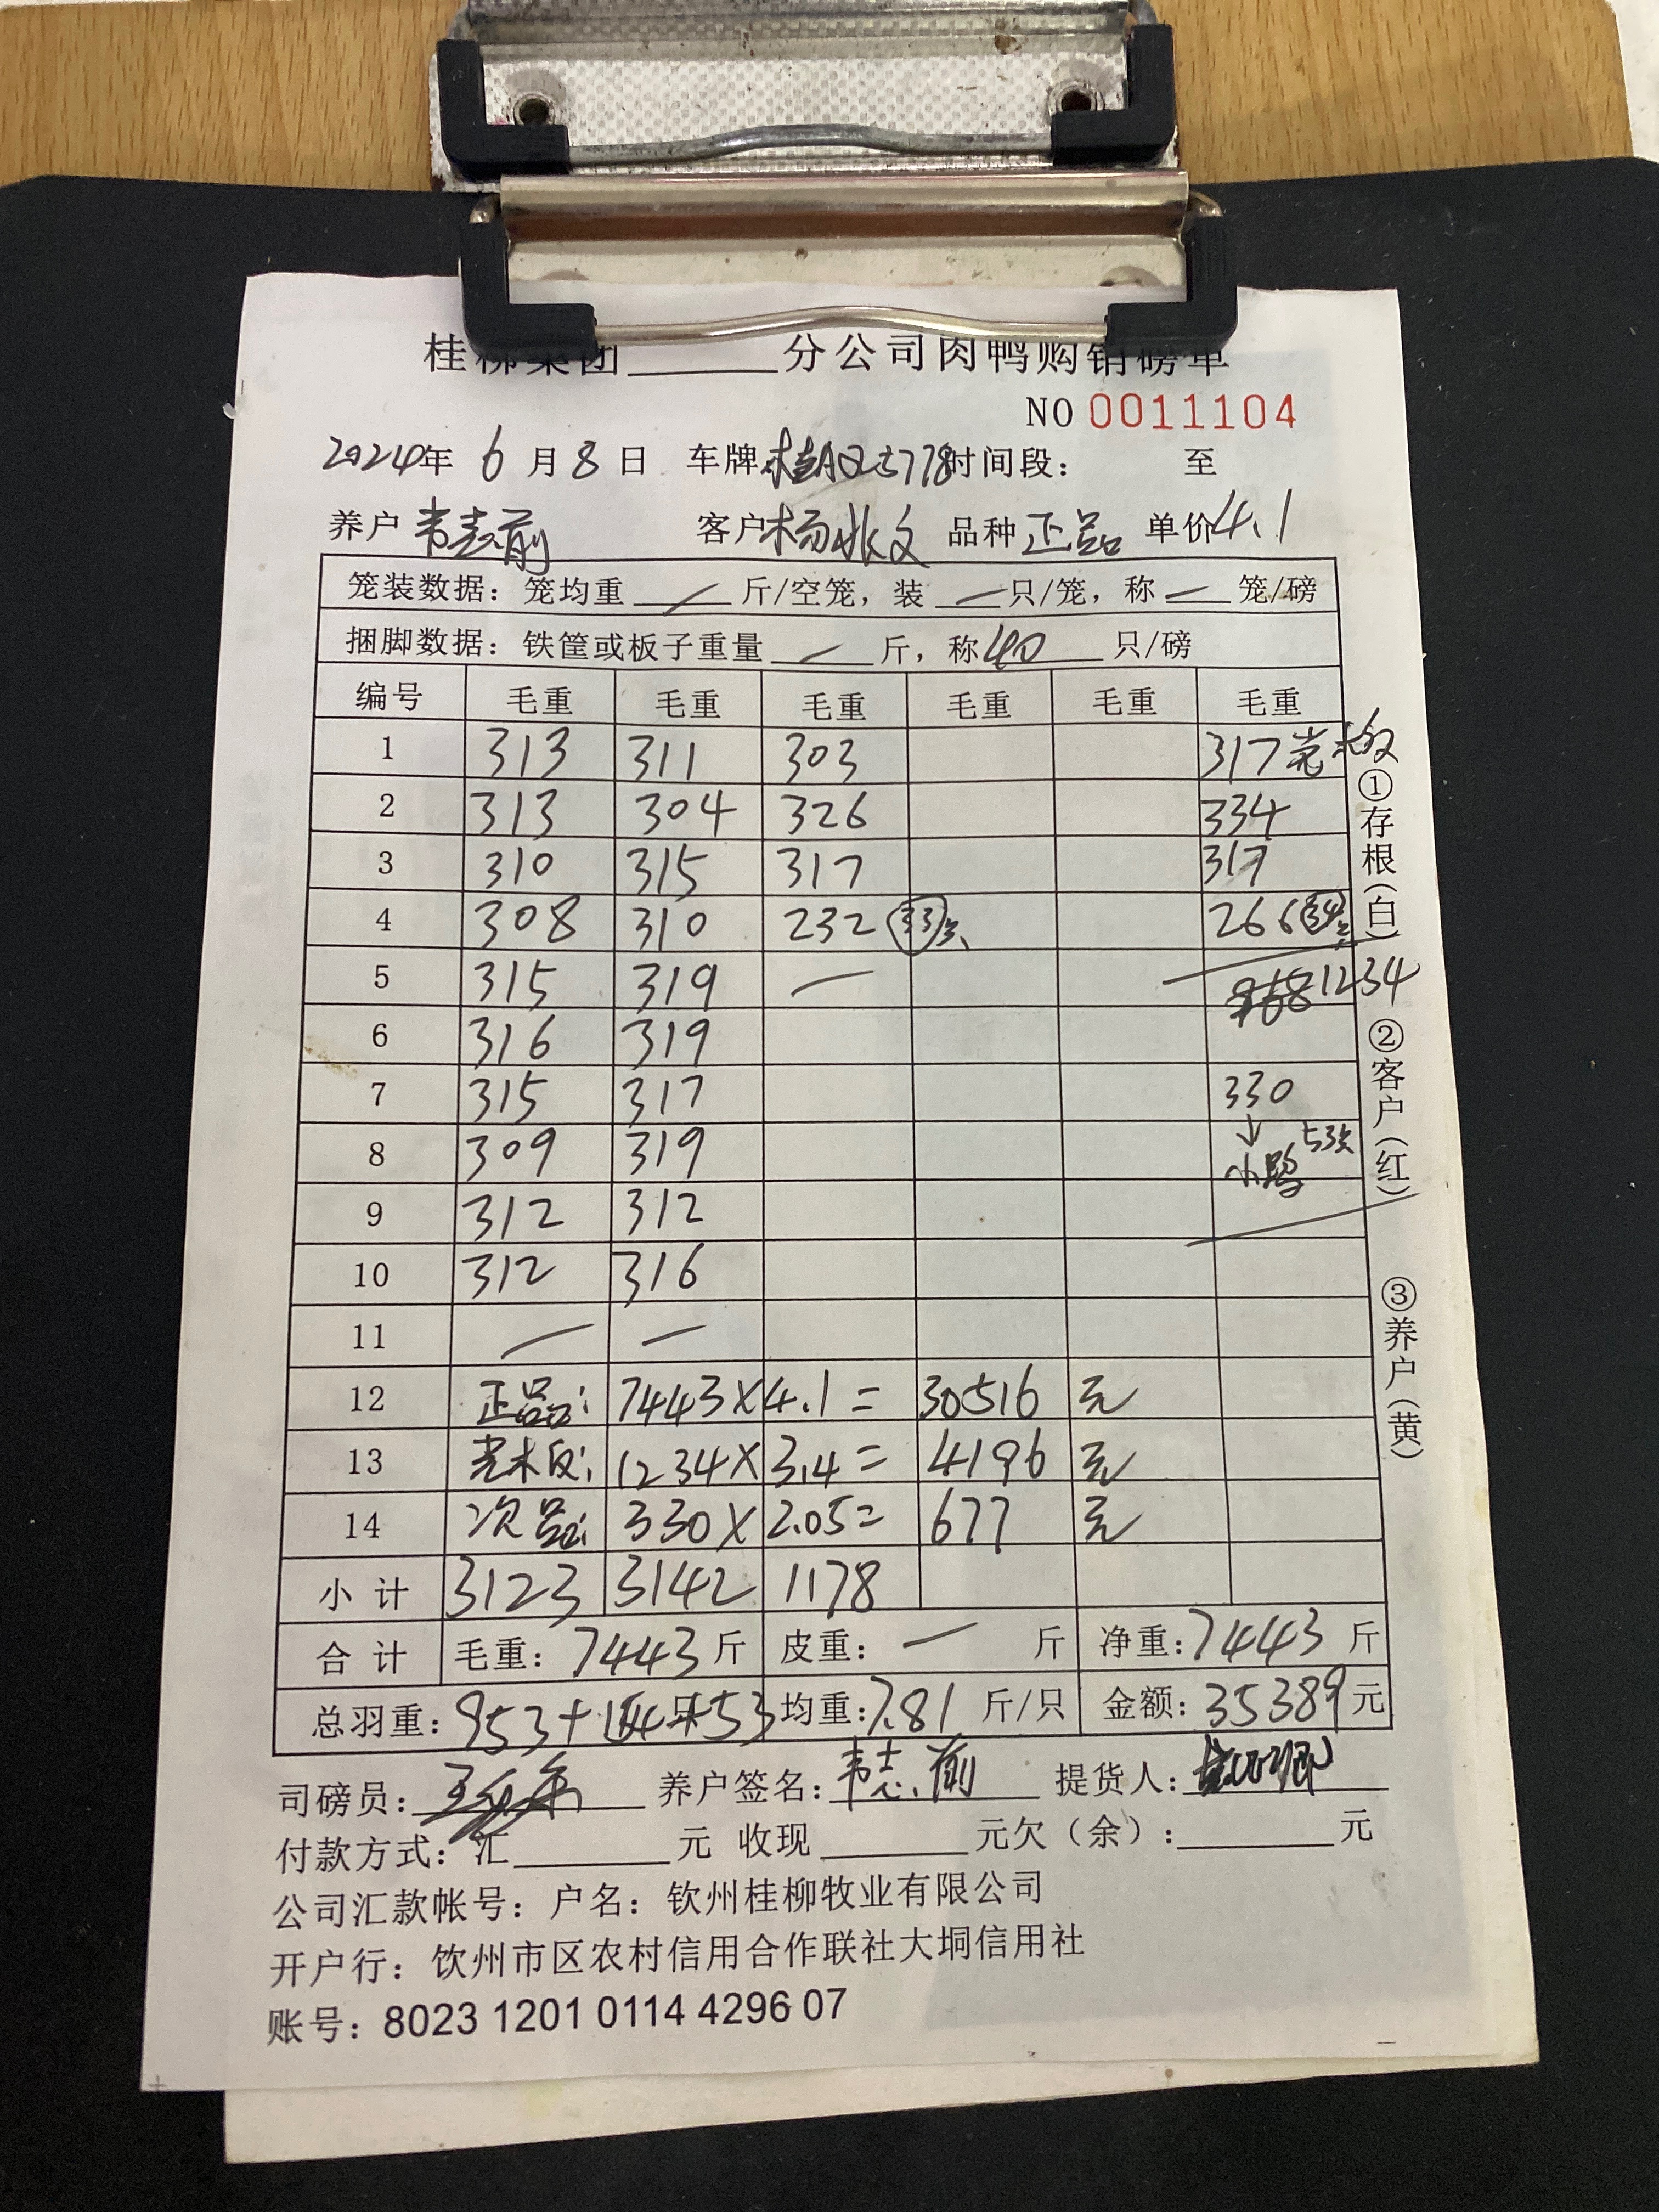 桂柳集团______分公司肉鸭购销磅单
NO 0011104
2024年 6 月 8 日 车牌 时间段： 至
养户 韦志前 客户 杨 文 品种 正品 单价 4.1
笼装数据：笼均重 — 斤/空笼，装 — 只/笼，称 — 笼/磅
捆脚数据：铁筐或板子重量 — 斤，称 40 只/磅
编号 毛重 毛重 毛重 毛重 毛重 毛重
1 313 311 303 317
2 313 304 326 334
3 310 315 317 317
4 308 310 232 33只 266 34只
5 315 319 — 1234
6 316 319
7 315 317 330
8 309 319 ↓ 小鸭 53只
9 312 312
10 312 316
11 — —
12 正品： 7443×4.1= 30516 元
13 1234×3.4= 4196 元
14 次品： 330×2.05= 677 元
小计 3123 3142 1178
合计 毛重：7443斤 皮重：— 斤 净重：7443斤
总羽重：953+154+53 均重：7.81 斤/只 金额：35389元
司磅员： 养户签名：韦志前 提货人：
付款方式：汇______元 收现______元欠（余）：______元
公司汇款帐号：户名：钦州桂柳牧业有限公司
开户行：钦州市区农村信用合作联社大垌信用社
账号：8023 1201 0114 4296 07
①存根（白）
②客户（红）
③养户（黄）